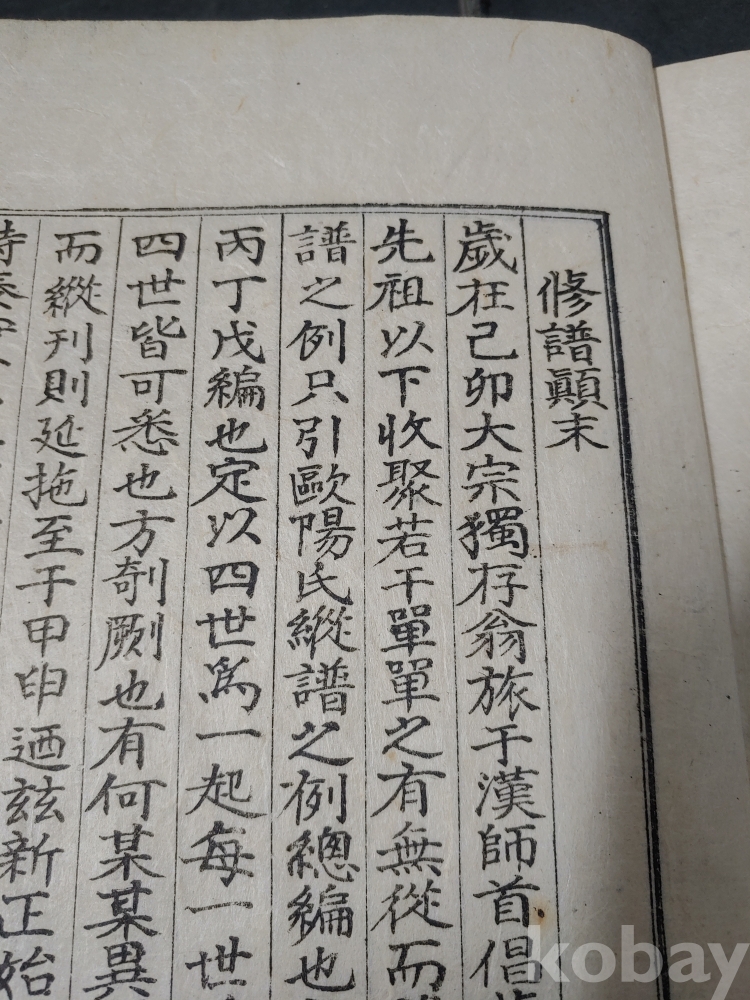 修譜顚末
歲在己卯大宗獨存翁旅于漢師首倡
先祖以下收聚若干單單之有無從而
譜之例只引歐陽氏縱譜之例總編也
丙丁戊編也定以四世爲一起每一世
四世皆可悉也方剞劂也有何某某異
而縱刊則延拖至于甲申迺玆新正始
kobay